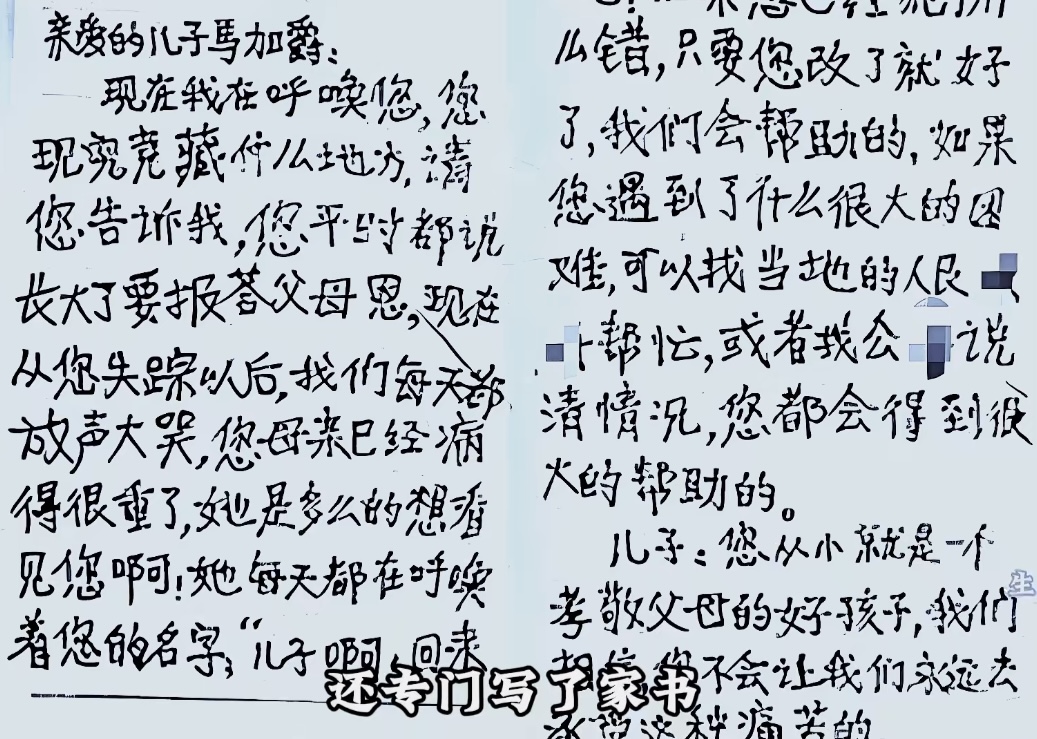 亲爱的儿子馬加爵:
现在我在呼唤您,您
现究竟藏什么地方,请
您告诉我,您平时都说
长大了要报答父母恩,现在
从您失踪以后,我们每天都
放声大哭,您母亲已经病
得很重了,她是多么的想看
见您啊!她每天都在呼唤
着您的名字,“儿子啊,回来
么错,只要您改了就好
了,我们会帮助的,如果
您遇到了什么很大的困
难,可以找当地的人民
帮忙,或者找公 说
清情况,您都会得到很
大的帮助的。
儿子:您从小就是一个
孝敬父母的好孩子,我们
相信您不会让我们永远去
承受这种痛苦的
还专门写了家书
生